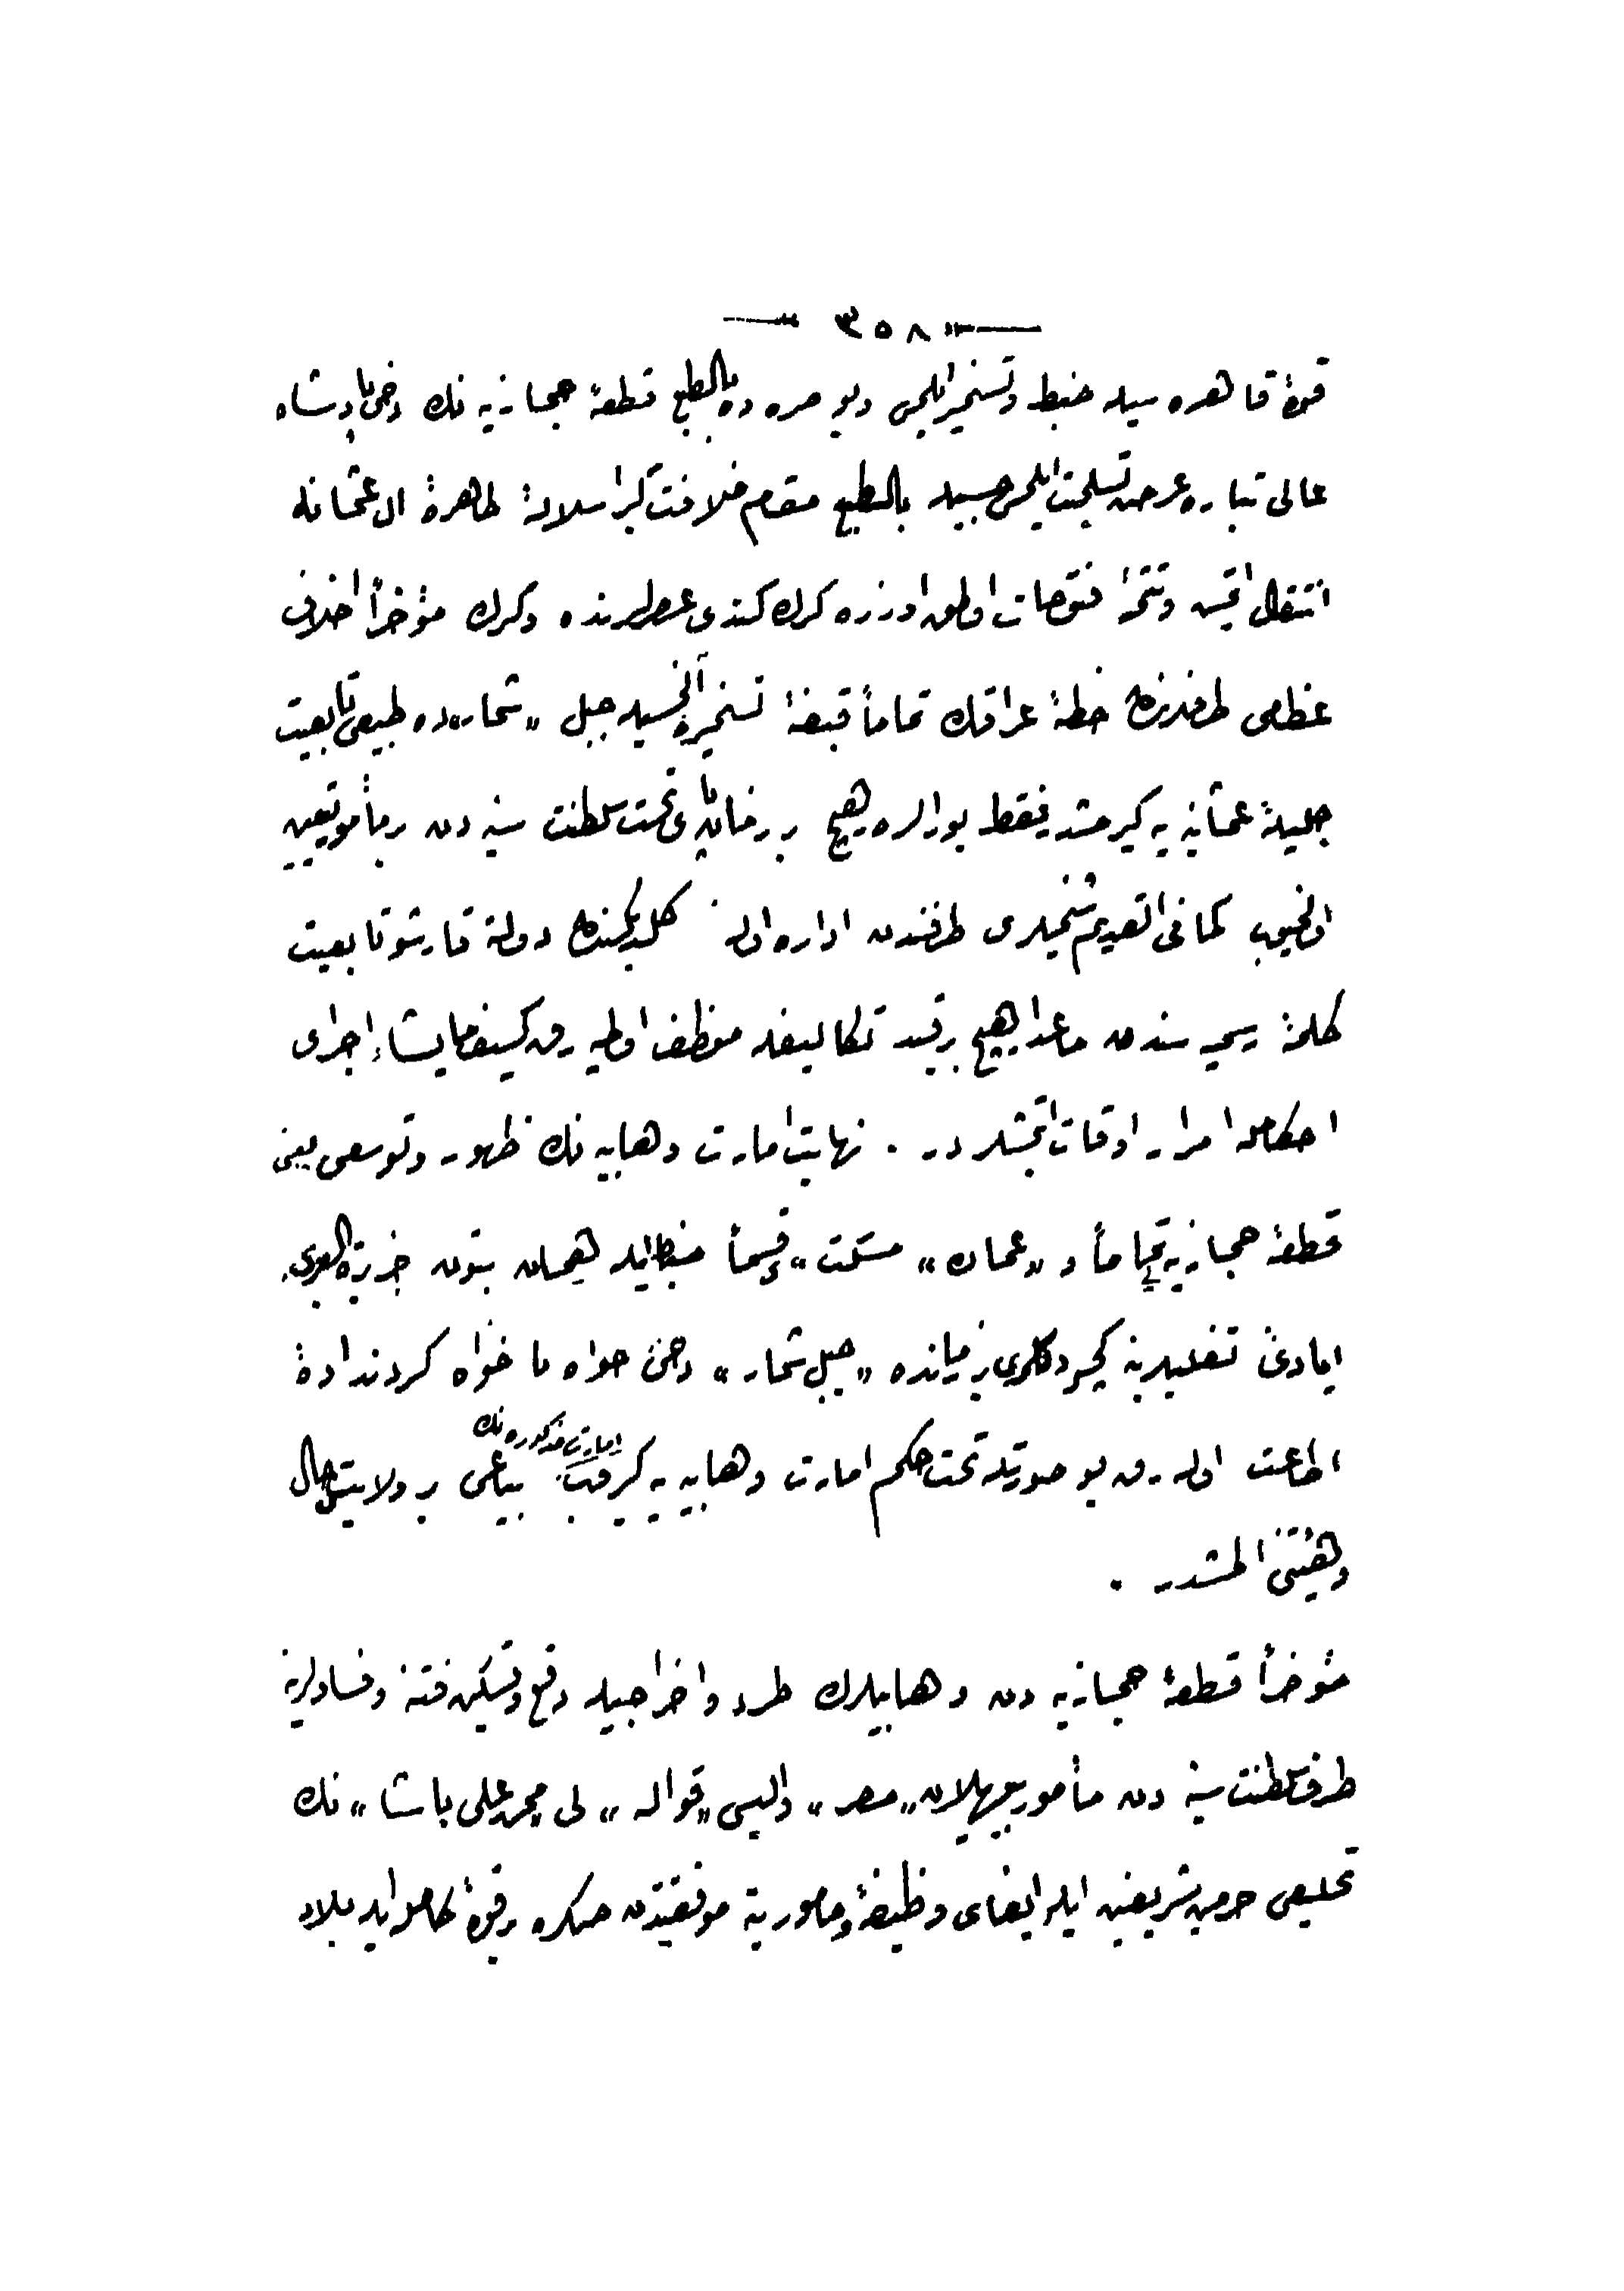 — ٣٥٨ —
قوهٔ قاهره سیله ضبط و تسخیر ایلمش و بو صره ده بالطبع قطعهٔ حجازیه نك دخی پادشاه
عالی تباره عرض تسلیمت ایلمسی حسبیله بالطبع مقام خلافت کبرا سلالهٔ طاهرهٔ ال عثمانه
انتقال ایتمش و تتمهٔ فتوحات اولمق اوزره کرك کندی عصرلرنده و کرك مؤخراً اخلاف
عظامی طرفندن خطهٔ عراقك تماماً قبضهٔ تسخیره آلنمسیله جبل «شمار» ده طبیعی تابعیت
جلیلهٔ عثمانیه یه کیرمشدر فقط بورالره هیچ بر زمان پای تخت سلطنت سنیه دن بر مأمور تعیین
اولنمیوب کما فی القدیم شیخلری طرفندن اداره اولنه کلدیکندن دولته قارشو تابعیت
کلمهٔ رسمیه سندن ماعدا هیچ بر قید تکالیفله موظف اولمیه رق کیف مایشاء اجرای
احکامله امرار اوقات ایتمشلردر . نهایت امارت وهابیه نك ظهور و توسعی یعنی
قطعهٔ حجازیه یی تماماً و «عمان» «مسکت» ی قسماً ضبط ایله همان بتون جزیرة العربی
ایادیٔ تغلبلرینه کچیردکلری بر زمانده «جبل شمار» دخی خواه نا خواه کردندادهٔ
اطاعت اوله رق بو صورتله تحت حکم امارت وهابیه یه کیره رك امارت مذکوره نك بیاغی بر ولایتی حال
و هیئتنی المشدر .
مؤخراً قطعهٔ حجازیه دن وهابیلرك طرد و اخراجیله دفع و تسکین فتنه و فسادلرینه
طرف سلطنت سنیه دن مأمور بیوریلان «مصر» والیسی «قواله» لی محمد علی پاشا» نك
تخلیص حرمین شریفین ایله ایفای وظیفهٔ مأموریته موفقیتندن صکره بر قوهٔ کامله ایله بلاد